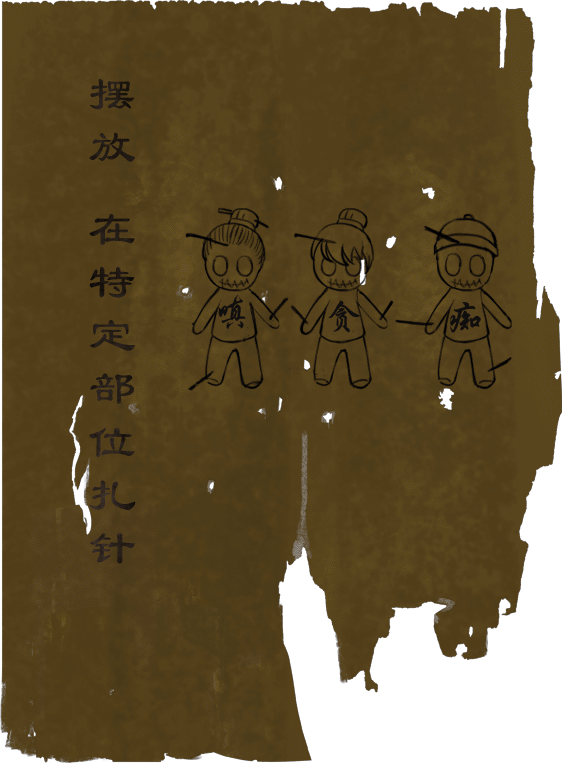 摆放 在特定部位扎针
嗔
贪
痴